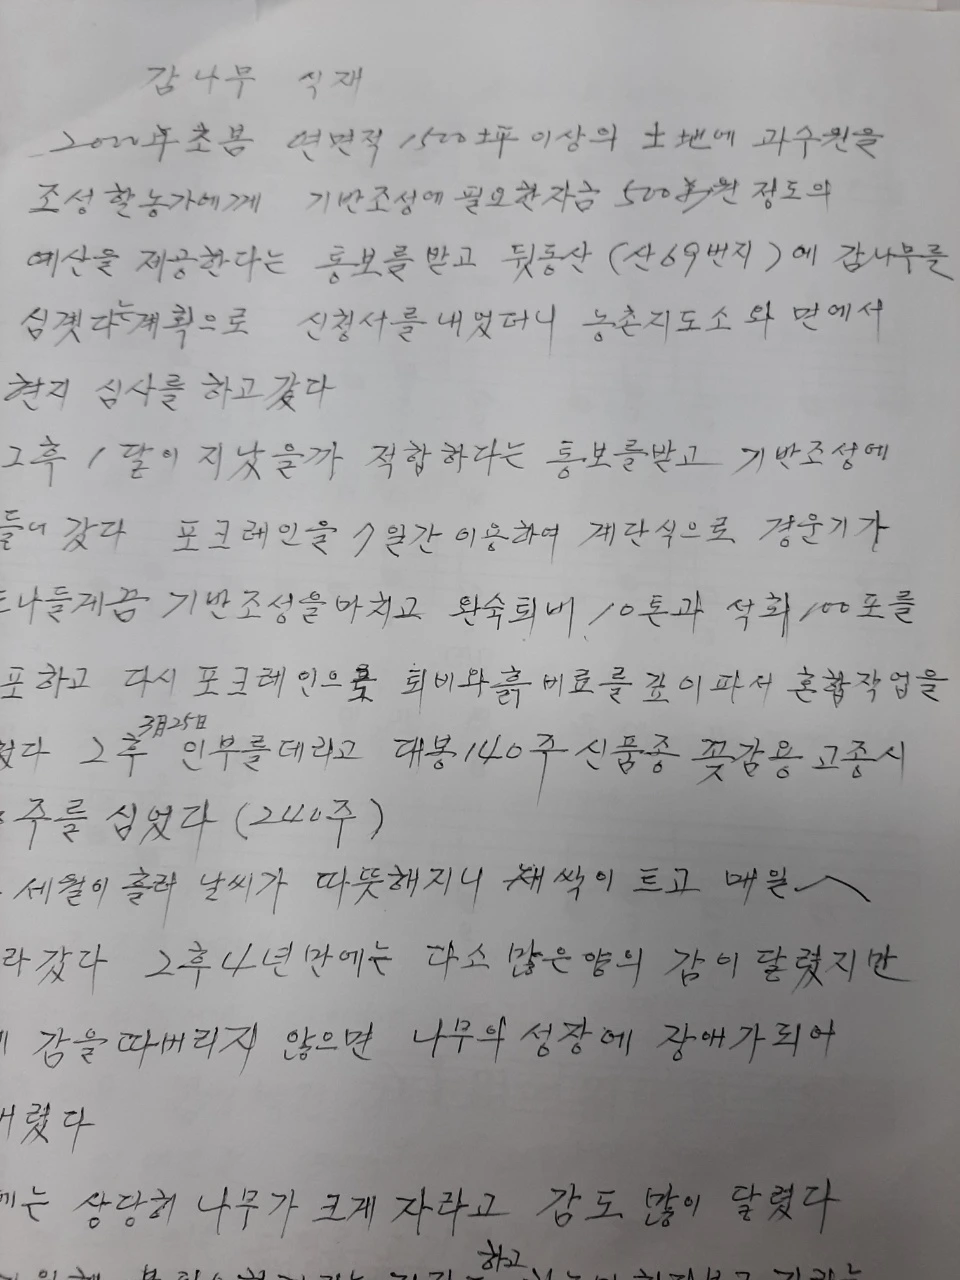 감나무 식재
2000年초봄 연면적 1500坪이상의 土地에 과수원을
조성할농가에게 기반조성에필요한자금 500万원 정도의
예산을 제공한다는 통보를 받고 뒷동산 (산69번지)에 감나무를
심겟다는계획으로 신청서를 내었더니 농촌지도소 와 면에서
현지 심사를 하고갔다
그후 1달이 지났을까 적합하다는 통보를받고 기반조성에
들어 갔다 포크레인을 7일간 이용하여 계단식으로 경운기가
나들게끔 기반조성을마치고 완숙퇴비 10톤과 석회100포를
포하고 다시 포크레인으로 퇴비와흙 비료를 깊이파서 혼합작업을
했다 그후 3月25日 인부를데리고 대봉140주 신품종 꽂감용 고종시
주를 심었다 (240주)
세월이 흘러 날씨가 따뜻해지니 새싹이 트고 매일
라갔다 그후4년만에는 다소 많은양의 감이 달렸지만
감을따버리지 않으면 나무의 성장에 장애가되어
버렸다
에는 상당히 나무가 크게 자라고 감도 많이 달렸다
하고